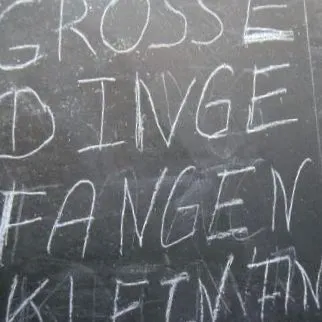 GROSSE
DINGE
FANGEN
KLEIN AN